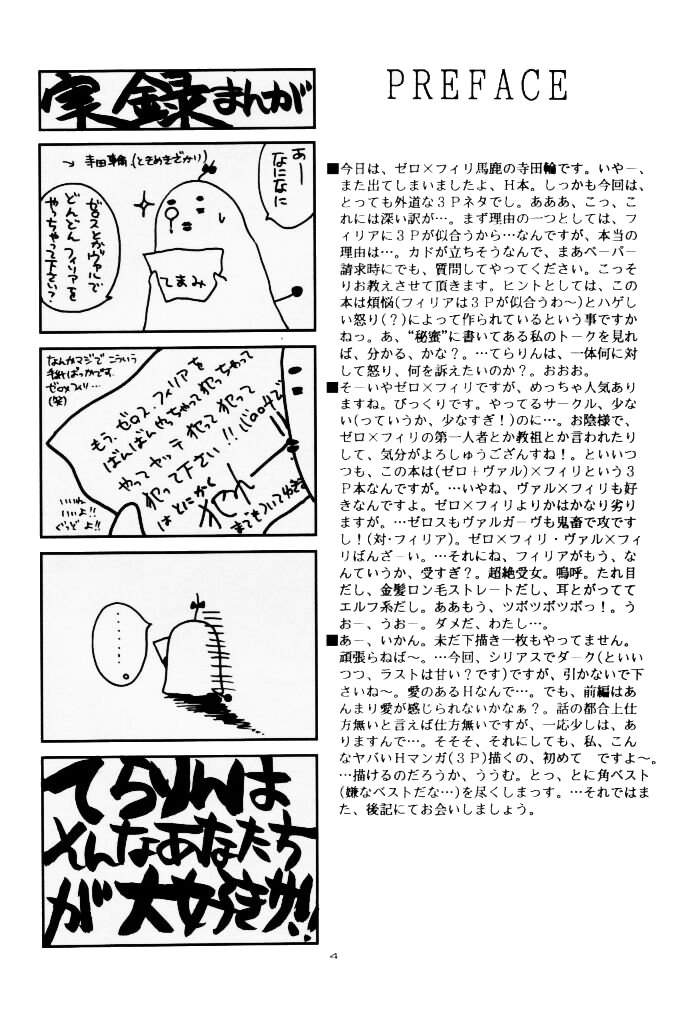 PREFACE
■今日は、ゼロ×フィリ馬鹿の寺田輪です。いやー、
また出てしまいましたよ、H本。しっかも今回は、
とっても外道な3Pネタでし。あああ、こっ、こ
れには深い訳が…。まず理由の一つとしては、フ
ィリアに3Pが似合うから…なんですが、本当の
理由は…。カドが立ちそうなんで、まあペーパー
請求時にでも、質問してやってください。こっそ
りお教えさせて頂きます。ヒントとしては、この
本は煩悩(フィリアは3Pが似合うわ~)とハゲし
い怒り(?)によって作られているという事ですか
ねっ。あ、“秘蜜”に書いてある私のトークを見れ
ば、分かる、かな?。…てらりんは、一体何に対
して怒り、何を訴えたいのか?。おおお。
■そーいやゼロ×フィリですが、めっちゃ人気あり
ますね。びっくりです。やってるサークル、少な
い(っていうか、少なすぎ!)のに…。お陰様で、
ゼロ×フィリの第一人者とか教祖とか言われたり
して、気分がよろしゅうございますね!。といいつ
つも、この本は(ゼロ+ヴァル)×フィリという3
P本なんですが。…いやね、ヴァル×フィリも好
きなんですよ。ゼロ×フィリよりかはかなり劣り
ますが。…ゼロスもヴァルガーヴも鬼畜で攻です
し!(対・フィリア)。ゼロ×フィリ・ヴァル×フィ
リばんざーい。…それにね、フィリアがもう、な
んていうか、受すぎ?。超絶受女。嗚呼。たれ目
だし、金髪ロン毛ストレートだし、耳とがってて
エルフ系だし。ああもう、ツボツボツボっ!。う
おー、うおー。ダメだ、わたし…。
■あー、いかん。未だ下描き一枚もやってません。
頑張らねば~。…今回、シリアスでダーク(といい
つつ、ラストは甘い?です)ですが、引かないで下
さいね~。愛のあるHなんで…。でも、前編はあ
んまり愛が感じられないかなぁ?。話の都合上仕
方無いと言えば仕方無いですが、一応少しは、あ
りますんで…。そそそ、それにしても、私、こん
なヤバいHマンガ(3P)描くの、初めて　ですよ~。
…描けるのだろうか、ううむ。とっ、とに角ベスト
(嫌なベストだな…)を尽くしまっす。…それではま
た、後記にてお会いしましょう。
実録まんが
あー
なになに
→寺田輪(ときめきざかり)
てまみ
ゼロスとかヴァルで
どんどんフィリアを
やっちゃって下さい?
なんかマジでこういう
手紙ばっかです。
ゼロ×フィリ…
(笑)
もう、ゼロス、フィリアを
ばんばんやっちゃって犯っちゃって
やってヤッテ犯って犯って
犯って下さい!!
はとにかく
犯れ
いいね
いいよ!!
ぐっどよ!!
……
てらりんは
そんなあなたち
が大好きサ!!
4